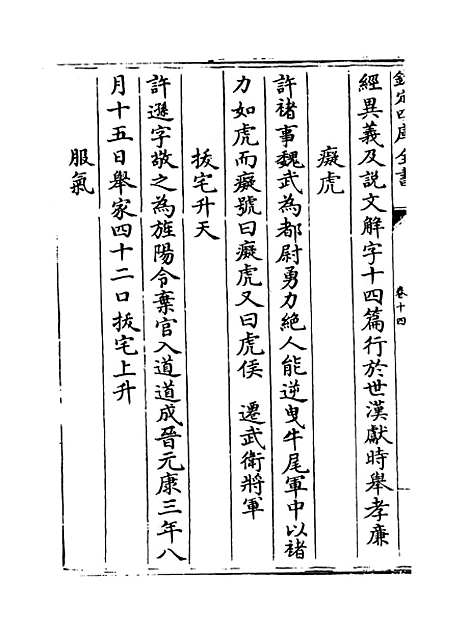 欽定四庫全書
卷十四
經異義及説文解字十四篇行於世漢獻時舉孝廉
癡虎
許禇事魏武為都尉勇力絶人能逆曳牛尾軍中以禇
力如虎而癡號曰癡虎又曰虎侯 遷武衛將軍
拔宅升天
許遜字敬之為旌陽令棄官入道道成晉元康三年八
月十五日舉家四十二口拔宅上升
服氣